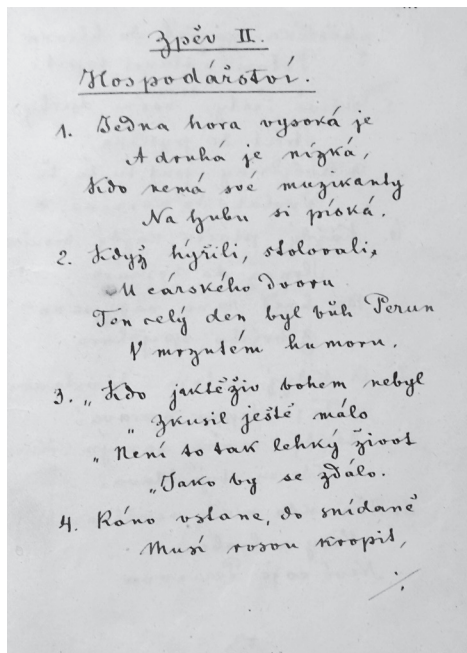 Zpěv II.
Hospodářství.
1. Jedna hora vysoká je
A druhá je nízká,
Kdo nemá své muzikanty
Na hubu si píská.
2. Když hýřili, stolovali,
U cárského dvoru
Ten celý den byl bůh Perun
V mrzutém humoru.
3. „Kdo jaktěživ bohem nebyl
„Zkusil ještě málo
„Není to tak lehký život
„Jako by se zdálo.
4. Ráno vstane, do snídaně
Musí rosou kropit,
./.